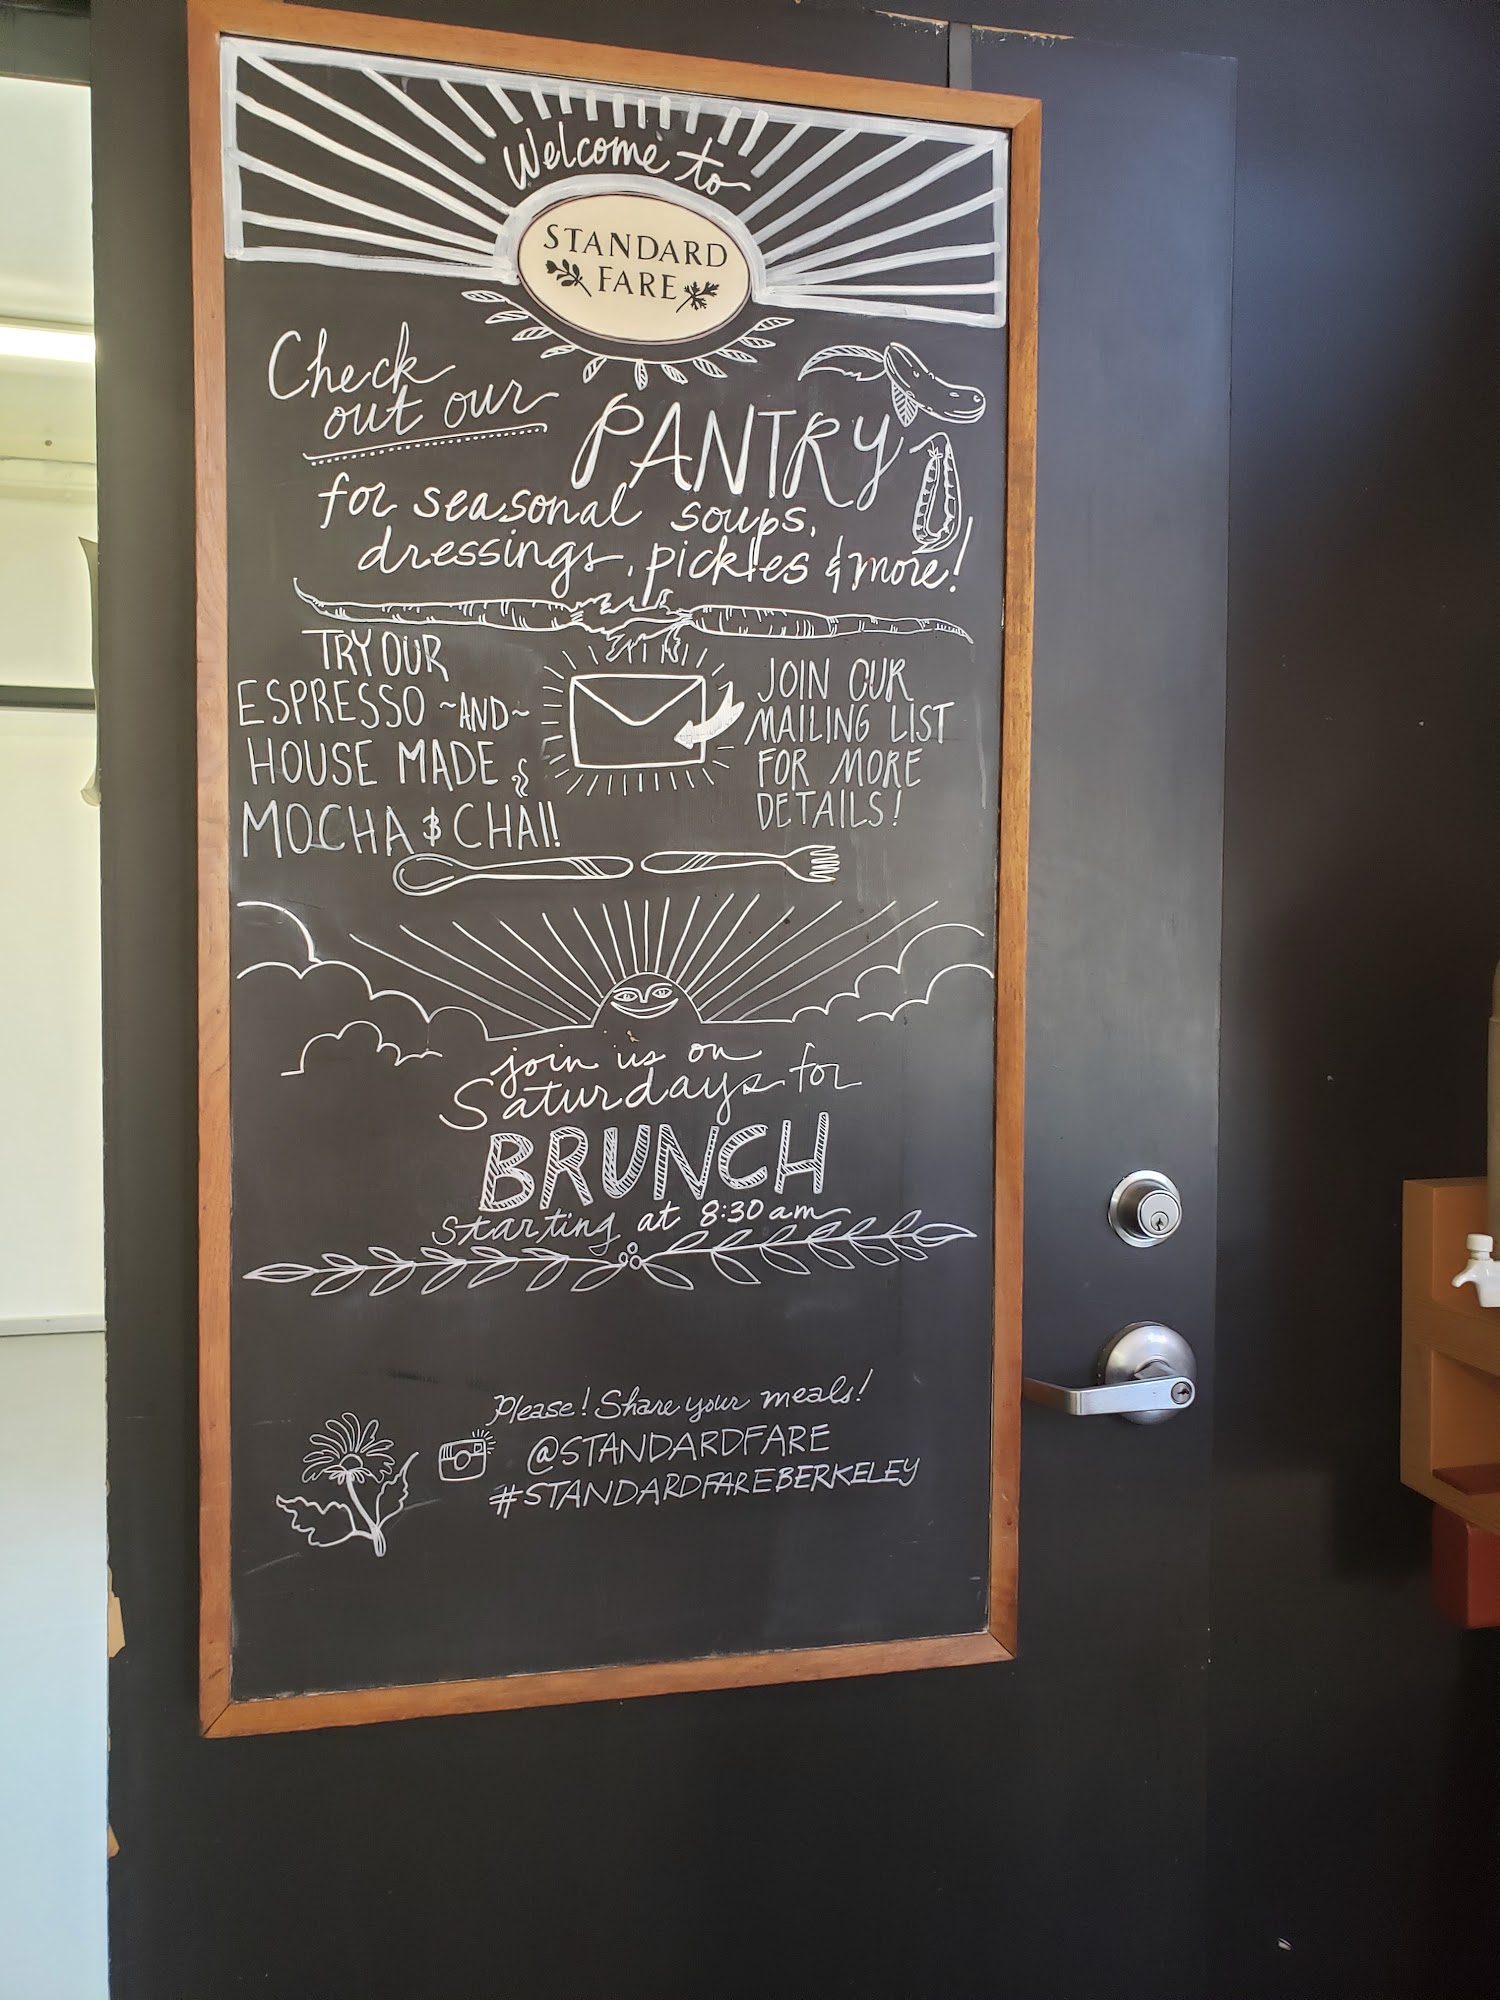 Welcome to
STANDARD
FARE
Check
out our
PANTRY
for seasonal soups,
dressings, pickles & more!
TRY OUR
ESPRESSO ~AND~
HOUSE MADE
MOCHA & CHAI!
JOIN OUR
MAILING LIST
FOR MORE
DETAILS!
join us on
Saturdays for
BRUNCH
starting at 8:30 am
Please! Share your meals!
@STANDARDFARE
#STANDARDFAREBERKELEY